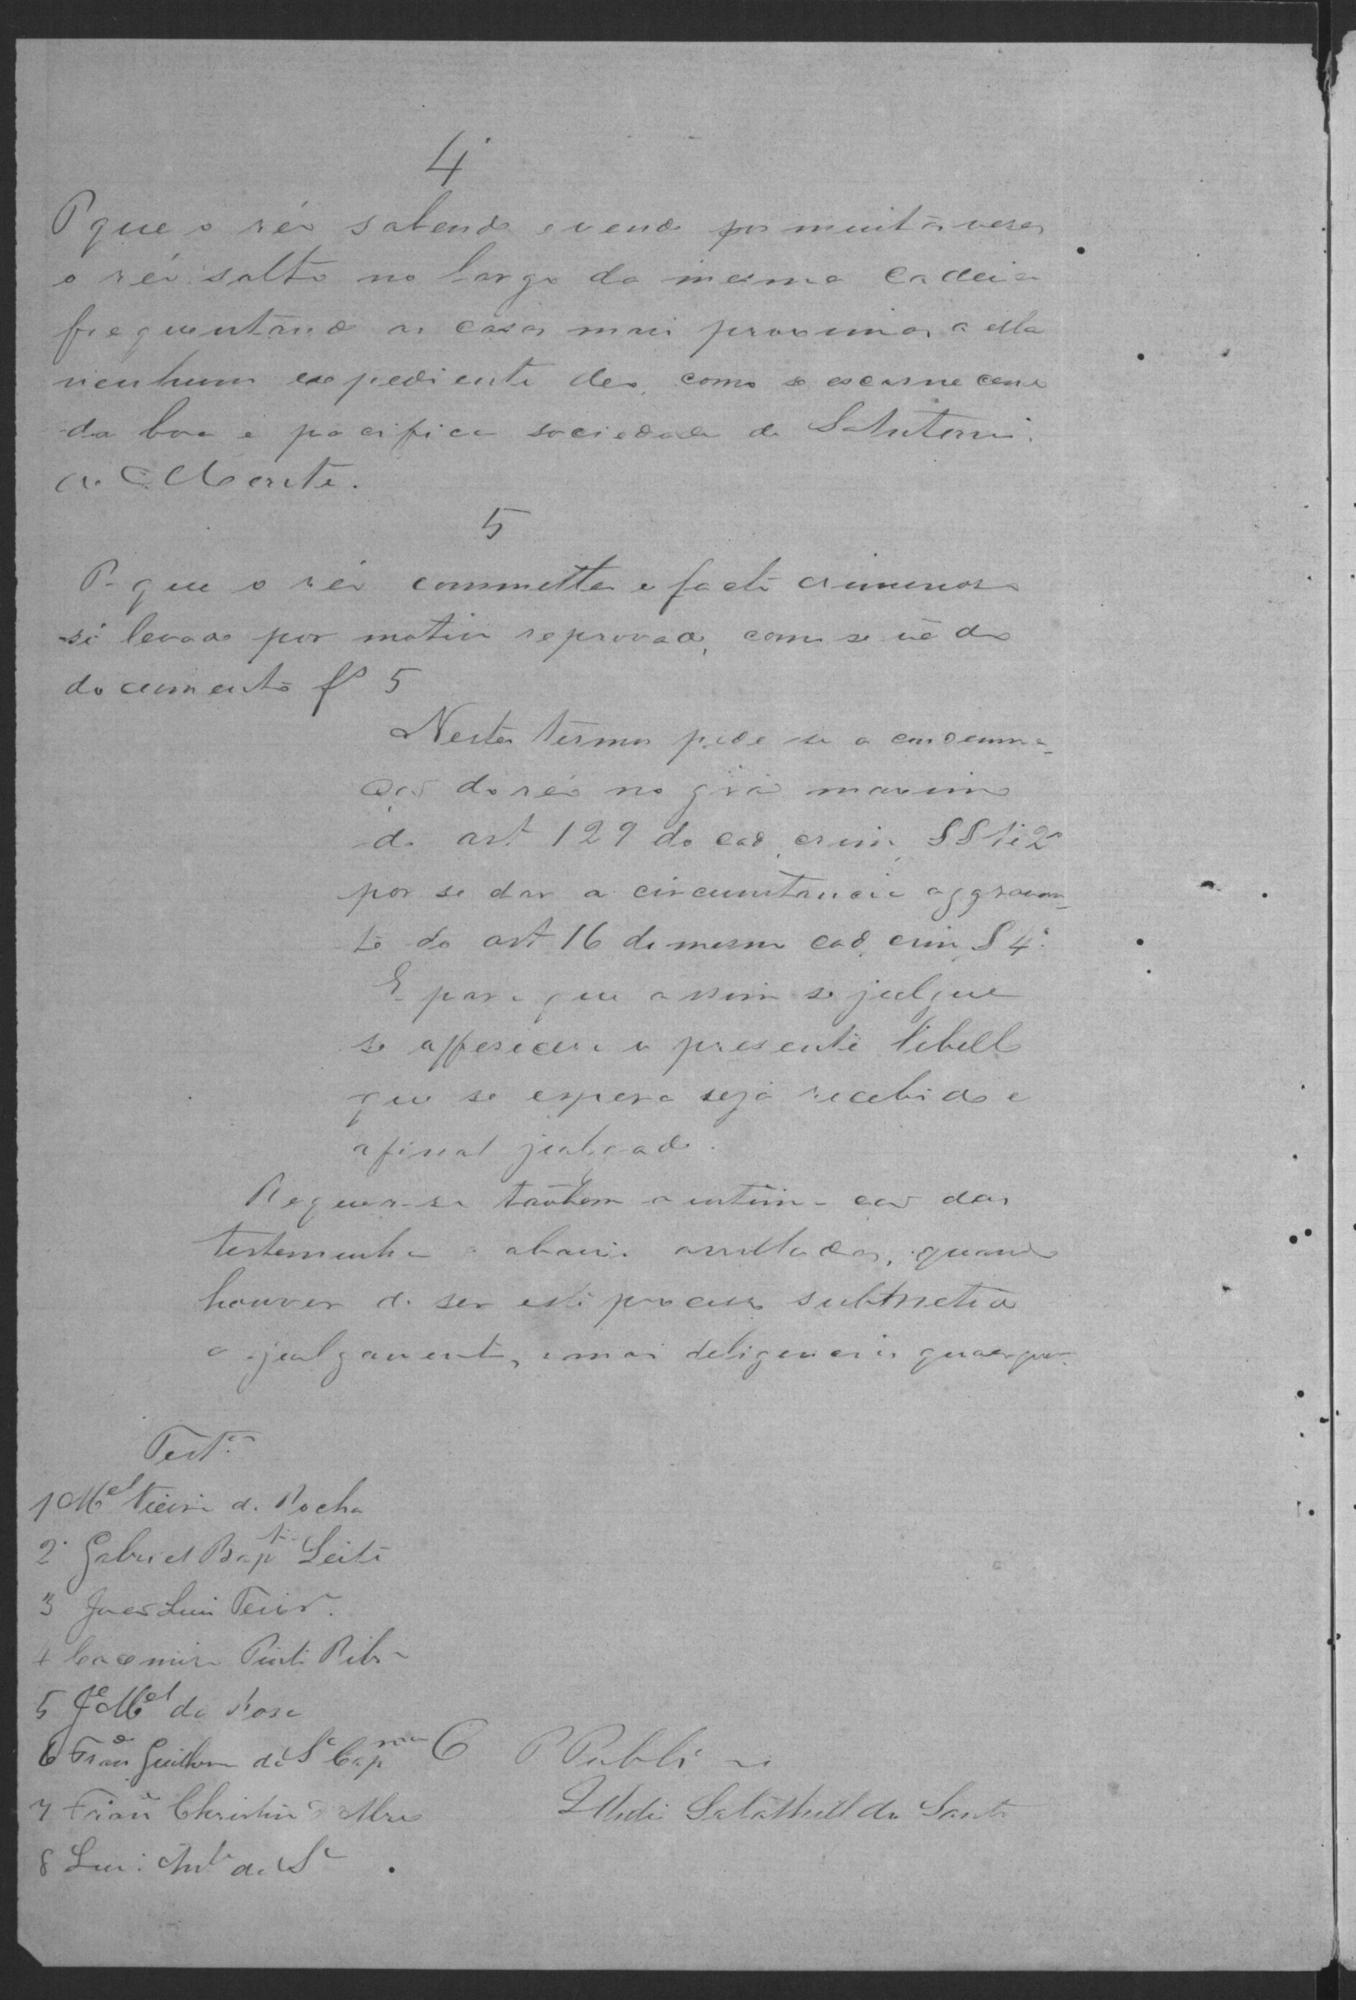 4
P que o réo sabendo e vendo por muitas veses
o réo solto no largo da mesma cadeia
frequentando as casas mais proximas a ella
nenhum expediente deo, como se escarnecesse
da boa e pacifica sociedade de S. Antonio
do Monte.
5
P. que o réo commetteo o facto criminoso
só levado por motivo reprovado, como se vê do
documento fs 5
Nestes termos pede-se a condemna-
ção do réo no gráo maximo
do art 129 do cod. crim. §§ 1 e 2º
por se dar a circumstancia aggravan-
te do art 16 do mesmo cod. crim. § 4º
E para que assim se julgue
se offerece o presente libello
que se espera seja recebido e
afinal julgado.
Requer-se tãobem a intima-ção das
testemunhas abaixo arrolladas, quando
houver de ser este processo submettido
a julgamento, e mais deligencias
Test.as
1 Mel Vieira da Rocha
2 Gabriel Bapta Leite
3 João Luis Ferrª
4 Casemiro Pinto Ribrº
5 Je Mel da Rosa
6 Franco Guilherme da Sª
7 Franco Christino
8 Luis Antº da Sª
O P Publico